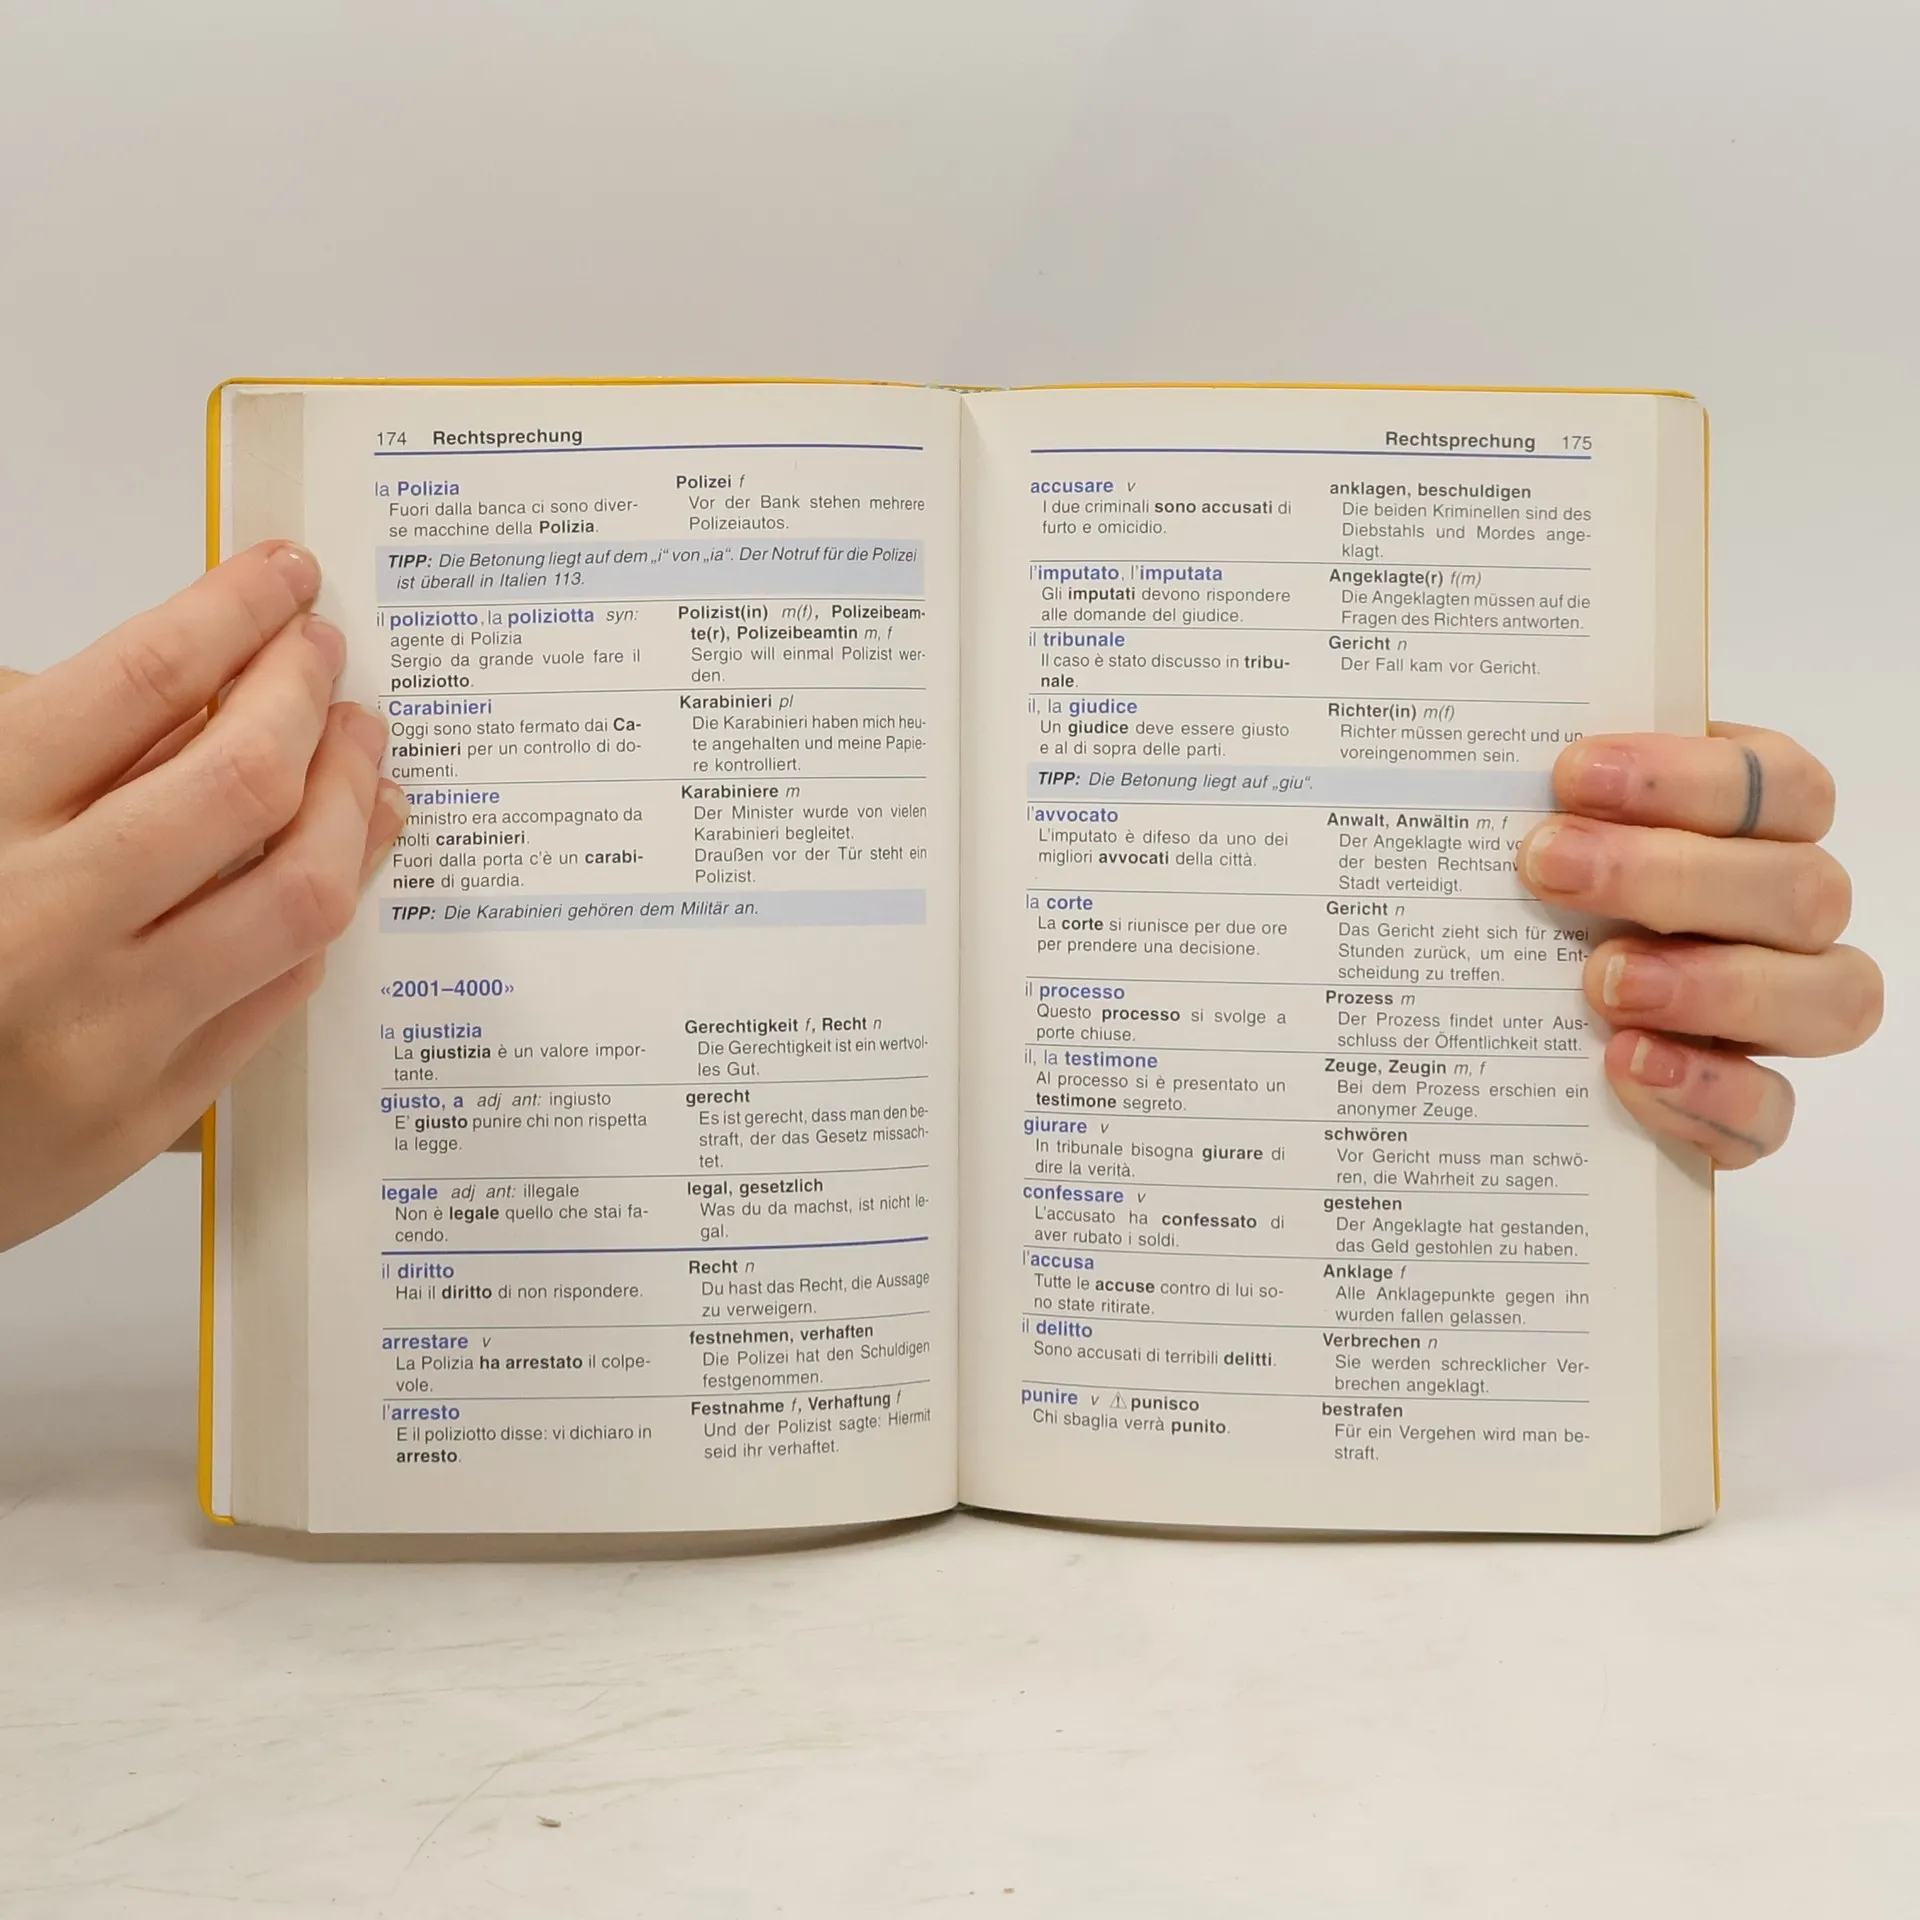 174 Rechtsprechung
la Polizia
Fuori dalla banca ci sono diver-
se macchine della Polizia.
Polizei f
Vor der Bank stehen mehrere
Polizeiautos.
TIPP: Die Betonung liegt auf dem „i“ von „ia“. Der Notruf für die Polizei
ist überall in Italien 113.
il poliziotto, la poliziotta syn:
agente di Polizia
Sergio da grande vuole fare il
poliziotto.
Polizist(in) m(f), Polizeibeam-
te(r), Polizeibeamtin m, f
Sergio will einmal Polizist wer-
den.
i Carabinieri
Oggi sono stato fermato dai Ca-
rabinieri per un controllo di do-
cumenti.
Karabinieri pl
Die Karabinieri haben mich heu-
te angehalten und meine Papie-
re kontrolliert.
arabiniere
ministro era accompagnato da
molti carabinieri.
Fuori dalla porta c'è un carabi-
niere di guardia.
Karabiniere m
Der Minister wurde von vielen
Karabinieri begleitet.
Draußen vor der Tür steht ein
Polizist.
TIPP: Die Karabinieri gehören dem Militär an.
«2001–4000»
la giustizia
La giustizia è un valore impor-
tante.
Gerechtigkeit f, Recht n
Die Gerechtigkeit ist ein wertvol-
les Gut.
giusto, a adj ant: ingiusto
E' giusto punire chi non rispetta
la legge.
gerecht
Es ist gerecht, dass man den be-
straft, der das Gesetz missach-
tet.
legale adj ant: illegale
Non è legale quello che stai fa-
cendo.
legal, gesetzlich
Was du da machst, ist nicht le-
gal.
il diritto
Hai il diritto di non rispondere.
Recht n
Du hast das Recht, die Aussage
zu verweigern.
arrestare v
La Polizia ha arrestato il colpe-
vole.
festnehmen, verhaften
Die Polizei hat den Schuldigen
festgenommen.
l'arresto
E il poliziotto disse: vi dichiaro in
arresto.
Festnahme f, Verhaftung f
Und der Polizist sagte: Hiermit
seid ihr verhaftet.
Rechtsprechung 175
accusare v
I due criminali sono accusati di
furto e omicidio.
anklagen, beschuldigen
Die beiden Kriminellen sind des
Diebstahls und Mordes ange-
klagt.
l'imputato, l'imputata
Gli imputati devono rispondere
alle domande del giudice.
Angeklagte(r) f(m)
Die Angeklagten müssen auf die
Fragen des Richters antworten.
il tribunale
Il caso è stato discusso in tribu-
nale.
Gericht n
Der Fall kam vor Gericht.
il, la giudice
Un giudice deve essere giusto
e al di sopra delle parti.
Richter(in) m(f)
Richter müssen gerecht und un
voreingenommen sein.
TIPP: Die Betonung liegt auf „giu“.
l'avvocato
L'imputato è difeso da uno dei
migliori avvocati della città.
Anwalt, Anwältin m, f
Der Angeklagte wird
der besten
Stadt verteidigt.
la corte
La corte si riunisce per due ore
per prendere una decisione.
Gericht n
Das Gericht zieht sich für zwei
Stunden zurück, um eine Ent-
scheidung zu treffen.
il processo
Questo processo si svolge a
porte chiuse.
Prozess m
Der Prozess findet unter Aus-
schluss der Öffentlichkeit statt.
il, la testimone
Al processo si è presentato un
testimone segreto.
Zeuge, Zeugin m, f
Bei dem Prozess erschien ein
anonymer Zeuge.
giurare v
In tribunale bisogna giurare di
dire la verità.
schwören
Vor Gericht muss man schwö-
ren, die Wahrheit zu sagen.
confessare v
L'accusato ha confessato di
aver rubato i soldi.
gestehen
Der Angeklagte hat gestanden,
das Geld gestohlen zu haben.
l'accusa
Tutte le accuse contro di lui so-
no state ritirate.
Anklage f
Alle Anklagepunkte gegen ihn
wurden fallen gelassen.
il delitto
Sono accusati di terribili delitti.
Verbrechen n
Sie werden schrecklicher Ver-
brechen angeklagt.
punire v ⚠ punisco
Chi sbaglia verrà punito.
bestrafen
Für ein Vergehen wird man be-
straft.